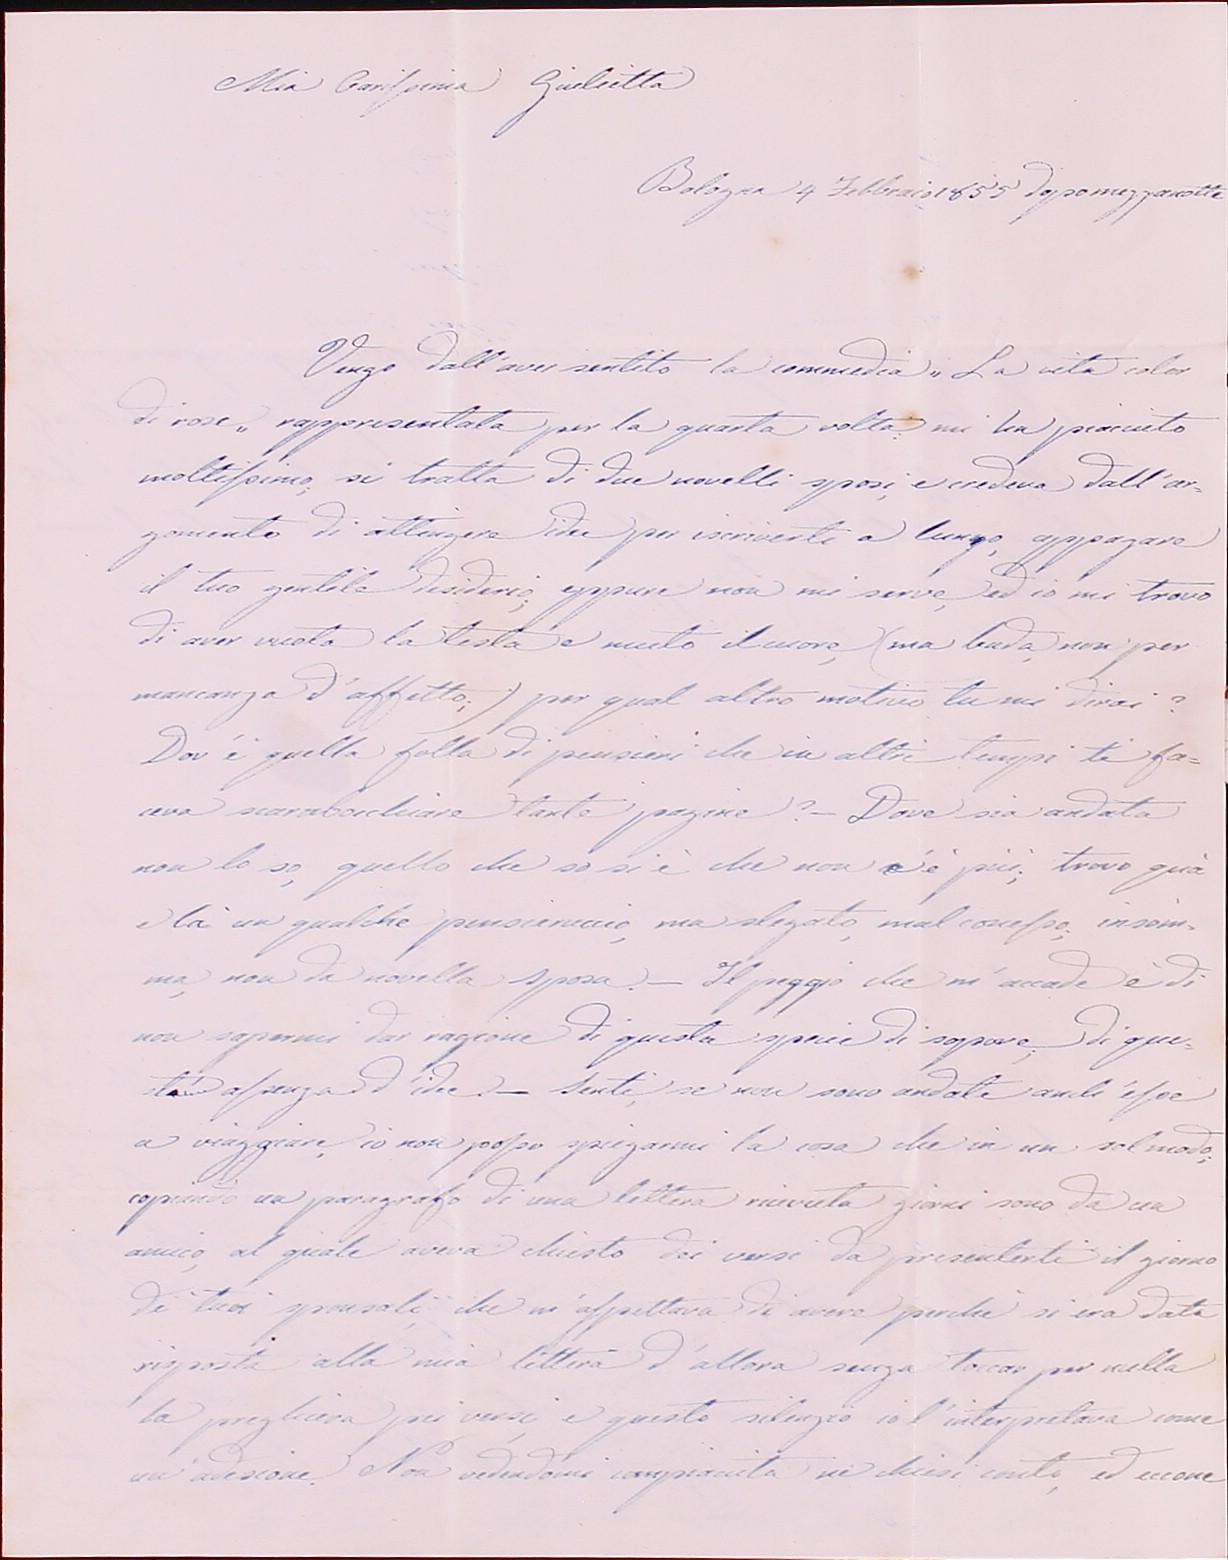 Mia Carissima Giulietta
Bologna 4 Febbraio 1855 dopo mezzanotte
Vengo dall'aver sentito la commedia „ La vita color
di rose „ rappresentata per la quarta volta: mi ha piaciuto
moltissimo; si tratta di due novelli sposi, e credeva dall'ar=
gomento di attingere idee per iscriverti a lungo, appagare
il tuo gentile desiderio; eppure non mi serve, ed io mi trovo
di aver vuota la testa e muto il cuore, (ma bada, non per
mancanza d'affetto;) per qual altro motivo tu mi dirai?
Dov'è quella folla di pensieri che in altri tempi ti fa=
ceva scarabocchiare tante pagine? – Dove sia andata
non lo so, quello che so si è che non c'è più; trovo quà
e là un qualche pensieruccio, ma slegato, mal concesso; insom=
ma, non da novella sposa. – Il peggio che m'accade è di
non sapermi dar ragione di questa specie di sopore, di que=
st'assenza d'idee. – Senti, se non sono andate anch'esse
a viaggiare, io non posso spiegarmi la cosa che in un sol modo;
copiando un paragrafo di una lettera ricevuta giorni sono da un
amico, al quale aveva chiesto dei versi da presentarti il giorno
de' tuoi sponsali, che m'aspettava di avere perchè si era data
risposta alla mia lettera d'allora senza toccar per nulla
la preghiera pei versi, e questo silenzio io l'interpretava come
un'adesione. Non vedendomi compiaciuta ne chiesi conto, ed eccone